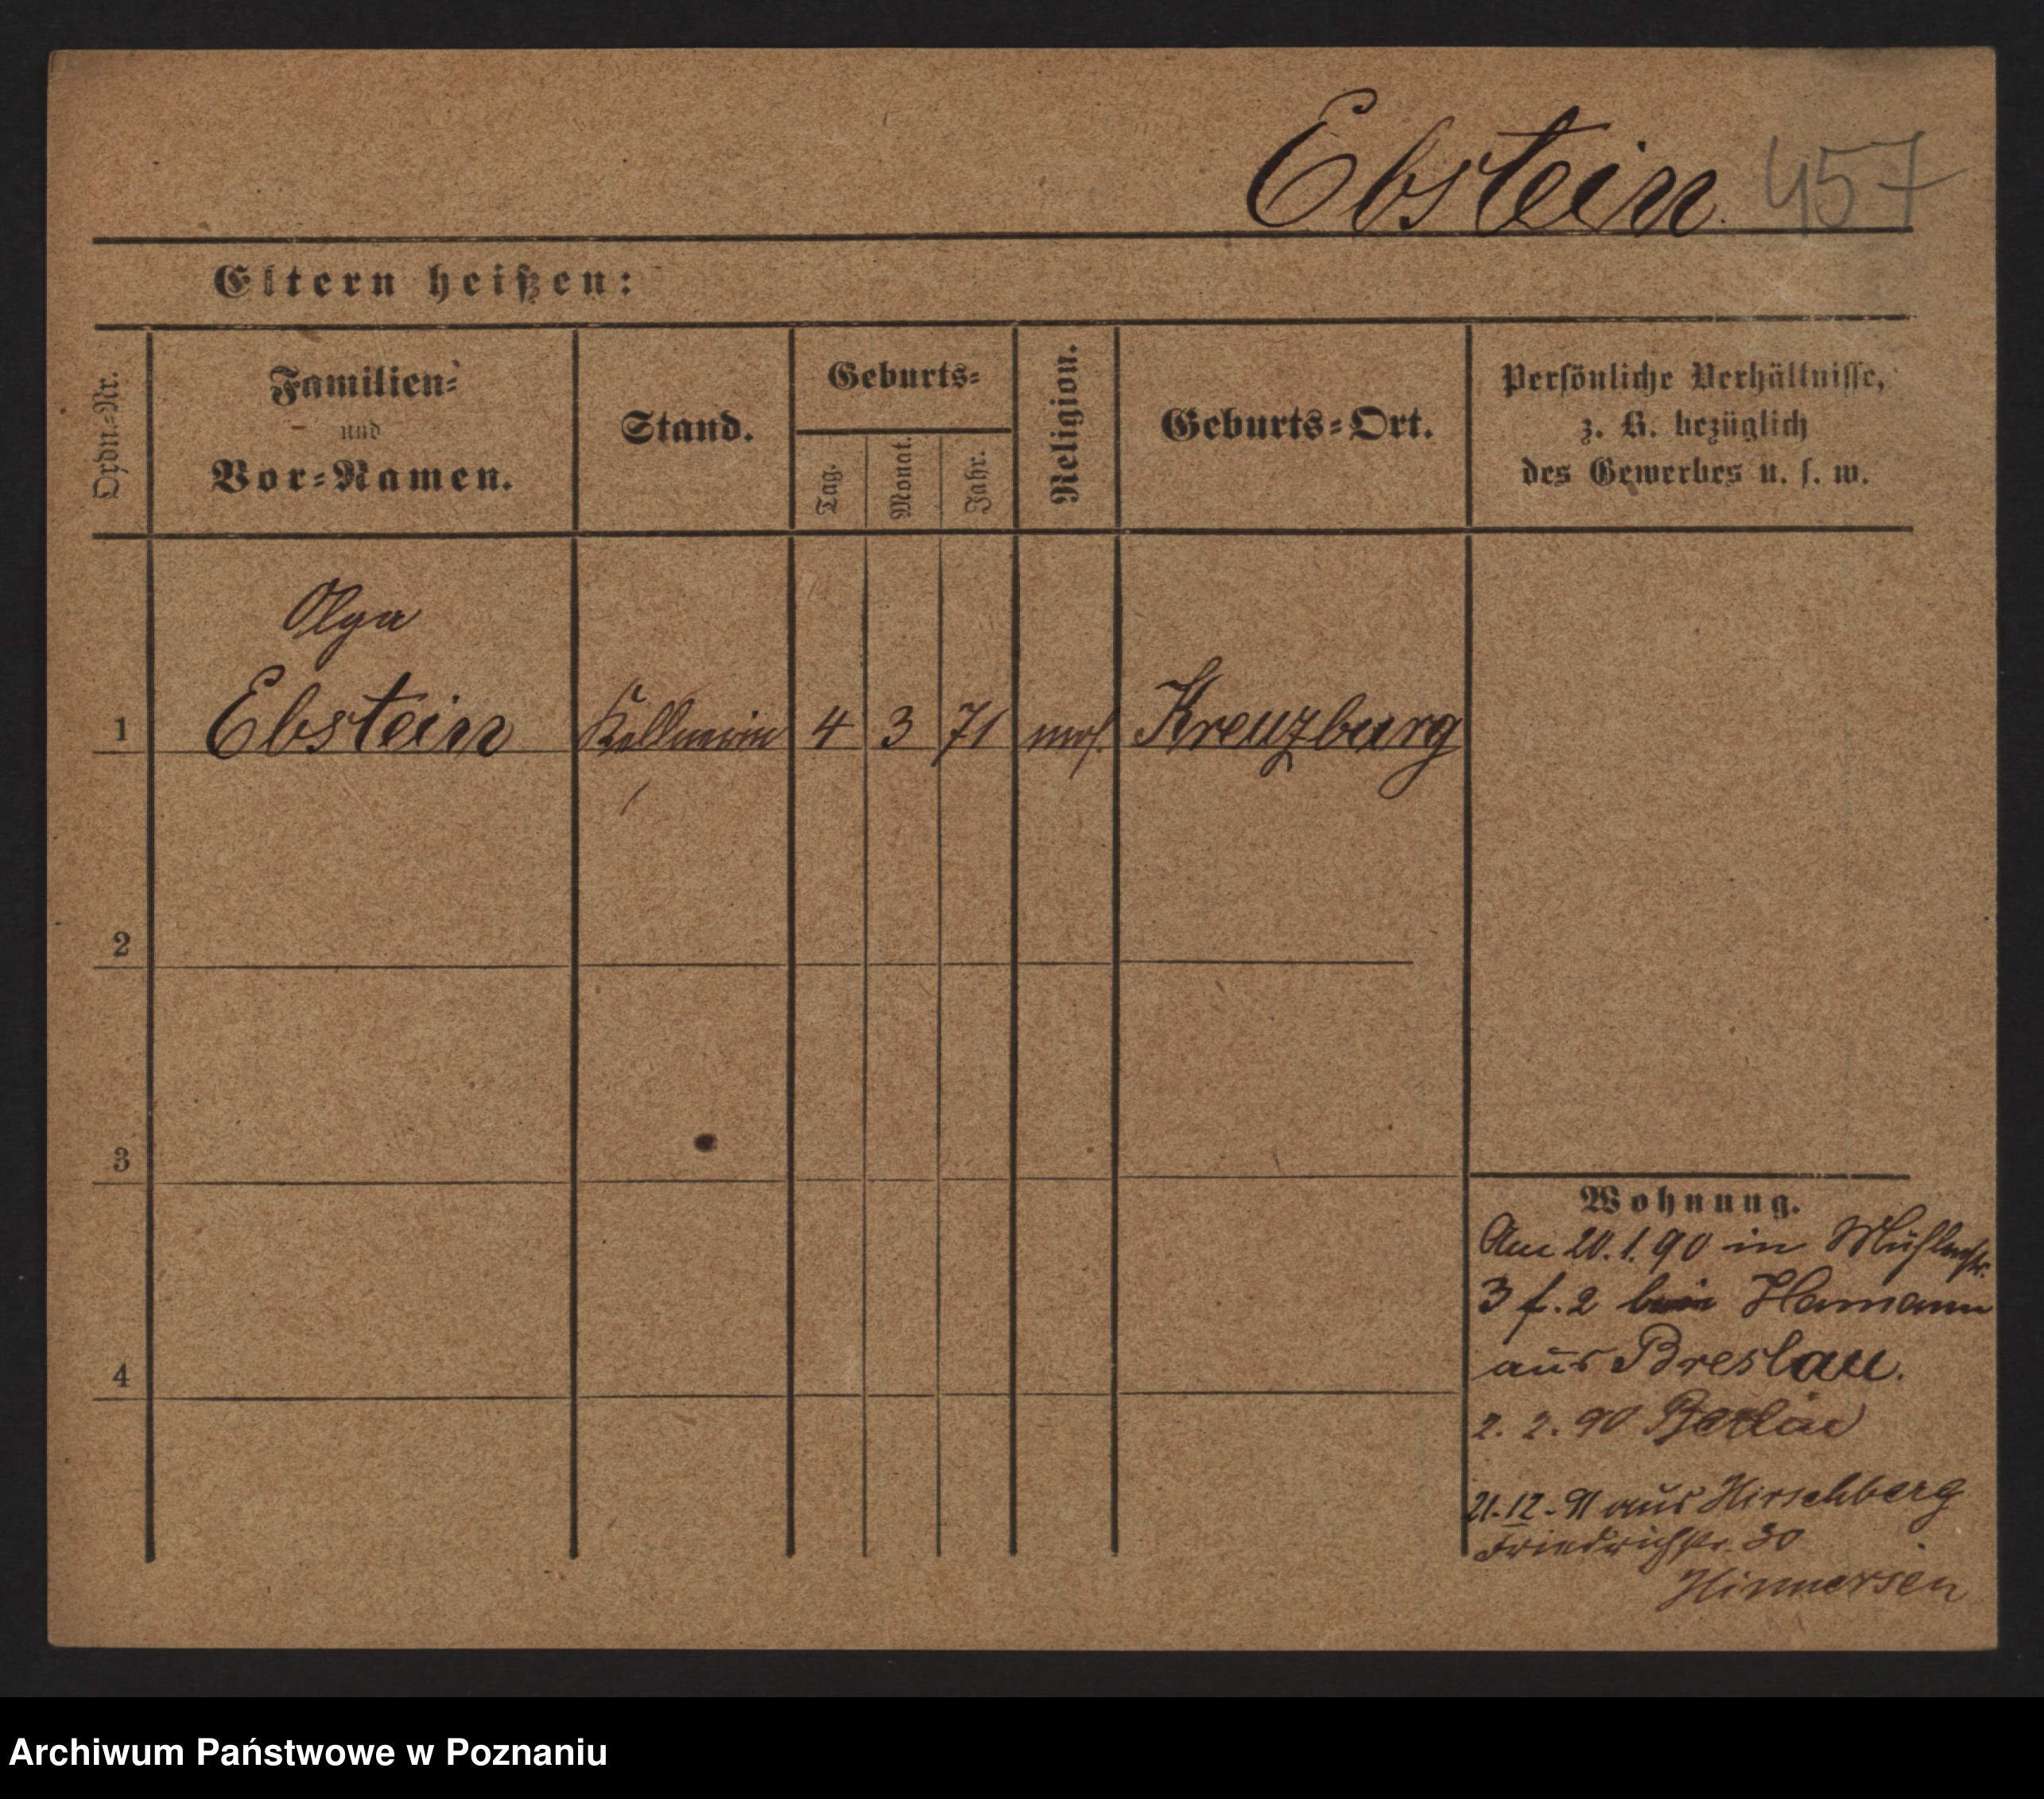 Ebstein. 457
Eltern heißen:
Ordn.-Nr.
Familien-
und
Vor-Namen.
Stand.
Geburts-
Tag.
Monat.
Jahr.
Religion.
Geburts-Ort.
Persönliche Verhältnisse,
z. B. bezüglich
des Gewerbes u. s. w.
Olga
1 Ebstein Kellnerin 4 3 71 mos. Kreuzburg
2
3
4
Wohnung.
Am 20.1.90 in Mühlenstr.
3 f. 2 bei Hamann
aus Breslau.
2. 2. 90 Berlin
21-12-91 aus Hirschberg
Friedrichstr. 30
Hinnersen
Archiwum Państwowe w Poznaniu